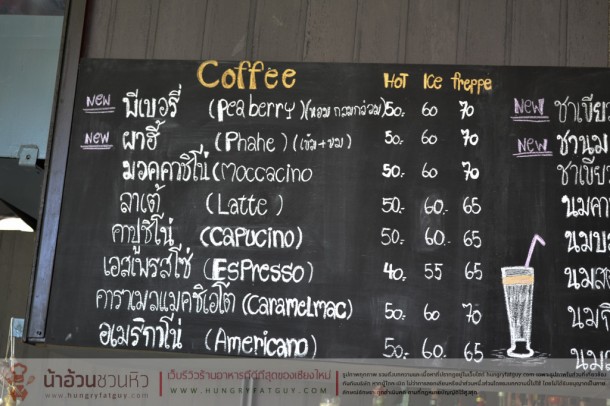 Coffee HOT ICE freppe
New พีเบอรี่ (Peaberry) (หอม กลมกล่อม) 50.- 60 70
New ผาฮี้ (Phahe) (เข้ม+ขม) 50.- 60 70
มอคคาชิโน่ (Moccacino 50.- 60 70
ลาเต้ (Latte) 50.- 60.- 65
คาปูชิโน่ (Capucino) 50.- 60.- 65
เอสเพรสโซ่ (Espresso) 40.- 55 65
คาราเมลแมคชิเอโต (Caramelmac) 50.- 60 70
อเมริกาโน่ (Americano) 50.- 60 65
New ชาเขียว
New ชานม
ชาเขีย
นมคา
นมบ
นมส
นมร
นมส
น้าอ้วนชวนหิว
www.hungryfatguy.com
เว็บรีวิวร้านอาหารที่ดีที่สุดของเชียงใหม่
WWW.HUNGRYFATGUY.COM